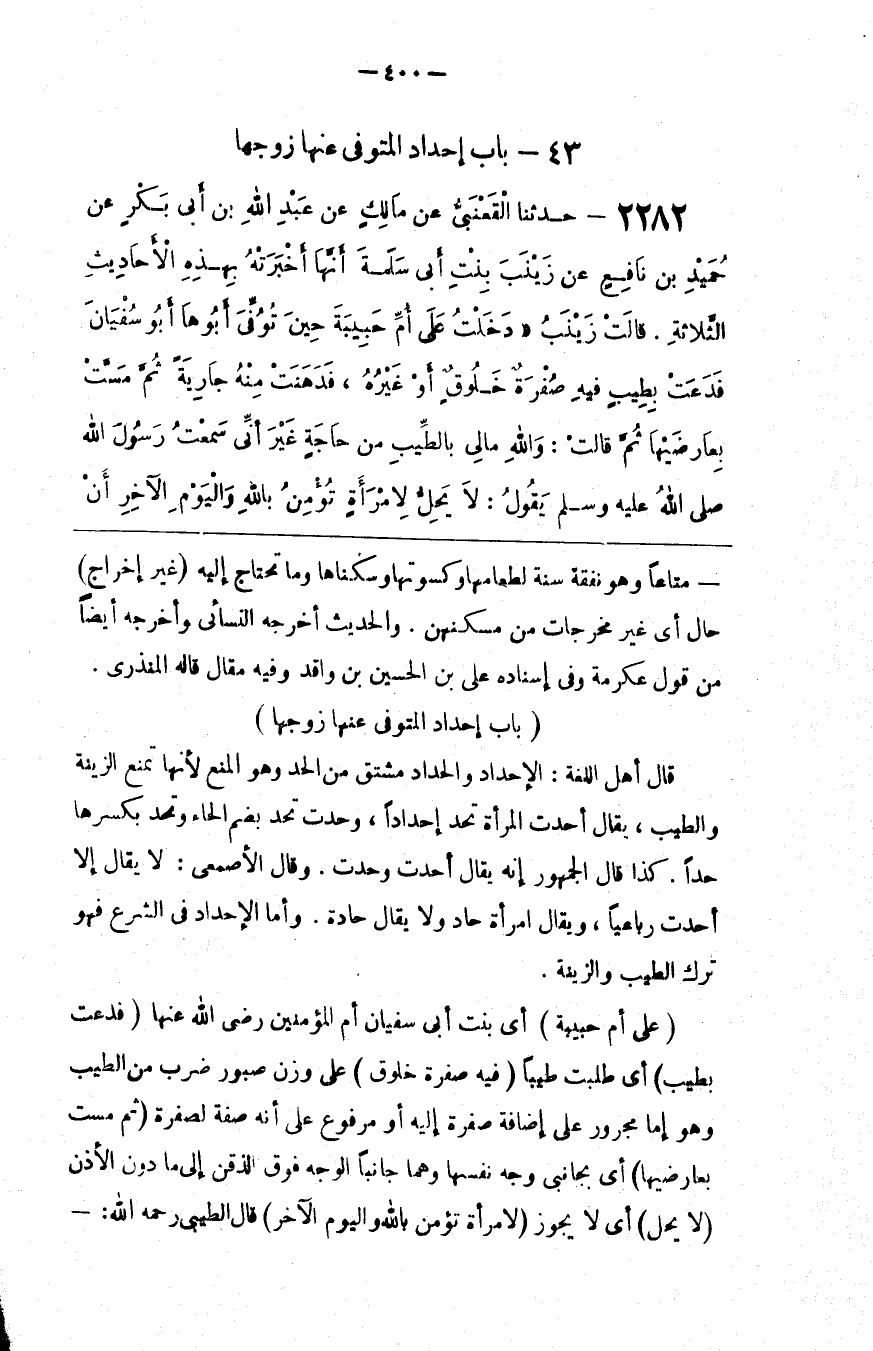 — ٤٠٠ —
٤٣ — باب إحداد المتوفى عنها زوجها
٢٢٨٢ — حـدثنا الْقَعْنَبىُّ عن مَالِكٍ عن عَبْدِ اللهِ بن أَبى بَـكْرٍ عن
حُمَيْدِ بن نَافِـعٍ عن زَيْنَبَ بِنْتِ أَبى سَلَمـةَ أَنَّهَا أَخْبَرَتْهُ بِهـذِهِ الْأَحَادِيثِ
الثَّلاثةِ . قالَتْ زَيْنَبُ « دَخَلْتُ عَلَى أُمِّ حَبِيبَةَ حِينَ تُوُفِّىَ أَبُوهاَ أَبُو سُفْيَانَ
فَدَعَتْ بِطِيبٍ فيهِ صُفْرَةٌ خَـلُوقٌ أَوْ غَيْرُهُ ، فَدَهَنَتْ مِنْهُ جاَرِيَةً ثُمَّ مَسَّتْ
بِعاَرِضَيْهَا ثُمَّ قالت : وَاللهِ مالِى بالطِّيبِ من حاَجَةٍ غَيْرَ أَنِّى سَمِعْتُ رَسُولَ الله
صلى اللهُ عليه وسـلم يَقُولُ : لاَ يَحِلُّ لِامْرَأَةٍ تُؤْمِنُ باللهِ وَالْيَوْمِ الآخِرِ أَنْ
— متاعاً وهو نفقة سنة لطعامها وكسوتها وسكناها وما تحتاج إليه (غير إخراج)
حال أى غير مخرجات من مسكنهن . والحديث أخرجه النسائى وأخرجه أيضاً
من قول عكرمة وفى إسناده على بن الحسين بن واقد وفيه مقال قاله المنذرى .
( باب إحداد المتوفى عنها زوجها )
قال أهل اللغة : الإحداد والحداد مشتق من الحد وهو المنع لأنها تمنع الزينة
والطيب ، يقال أحدت المرأة تحد إحداداً ، وحدت تحد بضم الحاء وتحد بكسرها
حداً . كذا قال الجمهور إنه يقال أحدت وحدت . وقال الأصمعى : لا يقال إلا
أحدت رباعياً ، ويقال امرأة حاد ولا يقال حادة . وأما الإحداد فى الشرع فهو
ترك الطيب والزينة .
( على أم حبيبة ) أى بنت أبى سفيان أم المؤمنين رضى الله عنها ( فدعت
بطيب) أى طلبت طيباً ( فيه صفرة خلوق ) على وزن صبور ضرب من الطيب
وهو إما مجرور على إضافة صفرة إليه أو مرفوع على أنه صفة لصفرة (ثم مست
بعارضيها) أى بجانبى وجه نفسها وهما جانباً الوجه فوق الذقن إلى ما دون الأذن
(لا يحل) أى لا يجوز (لامرأة تؤمن بالله واليوم الآخر) قال الطيبى رحمه الله: —